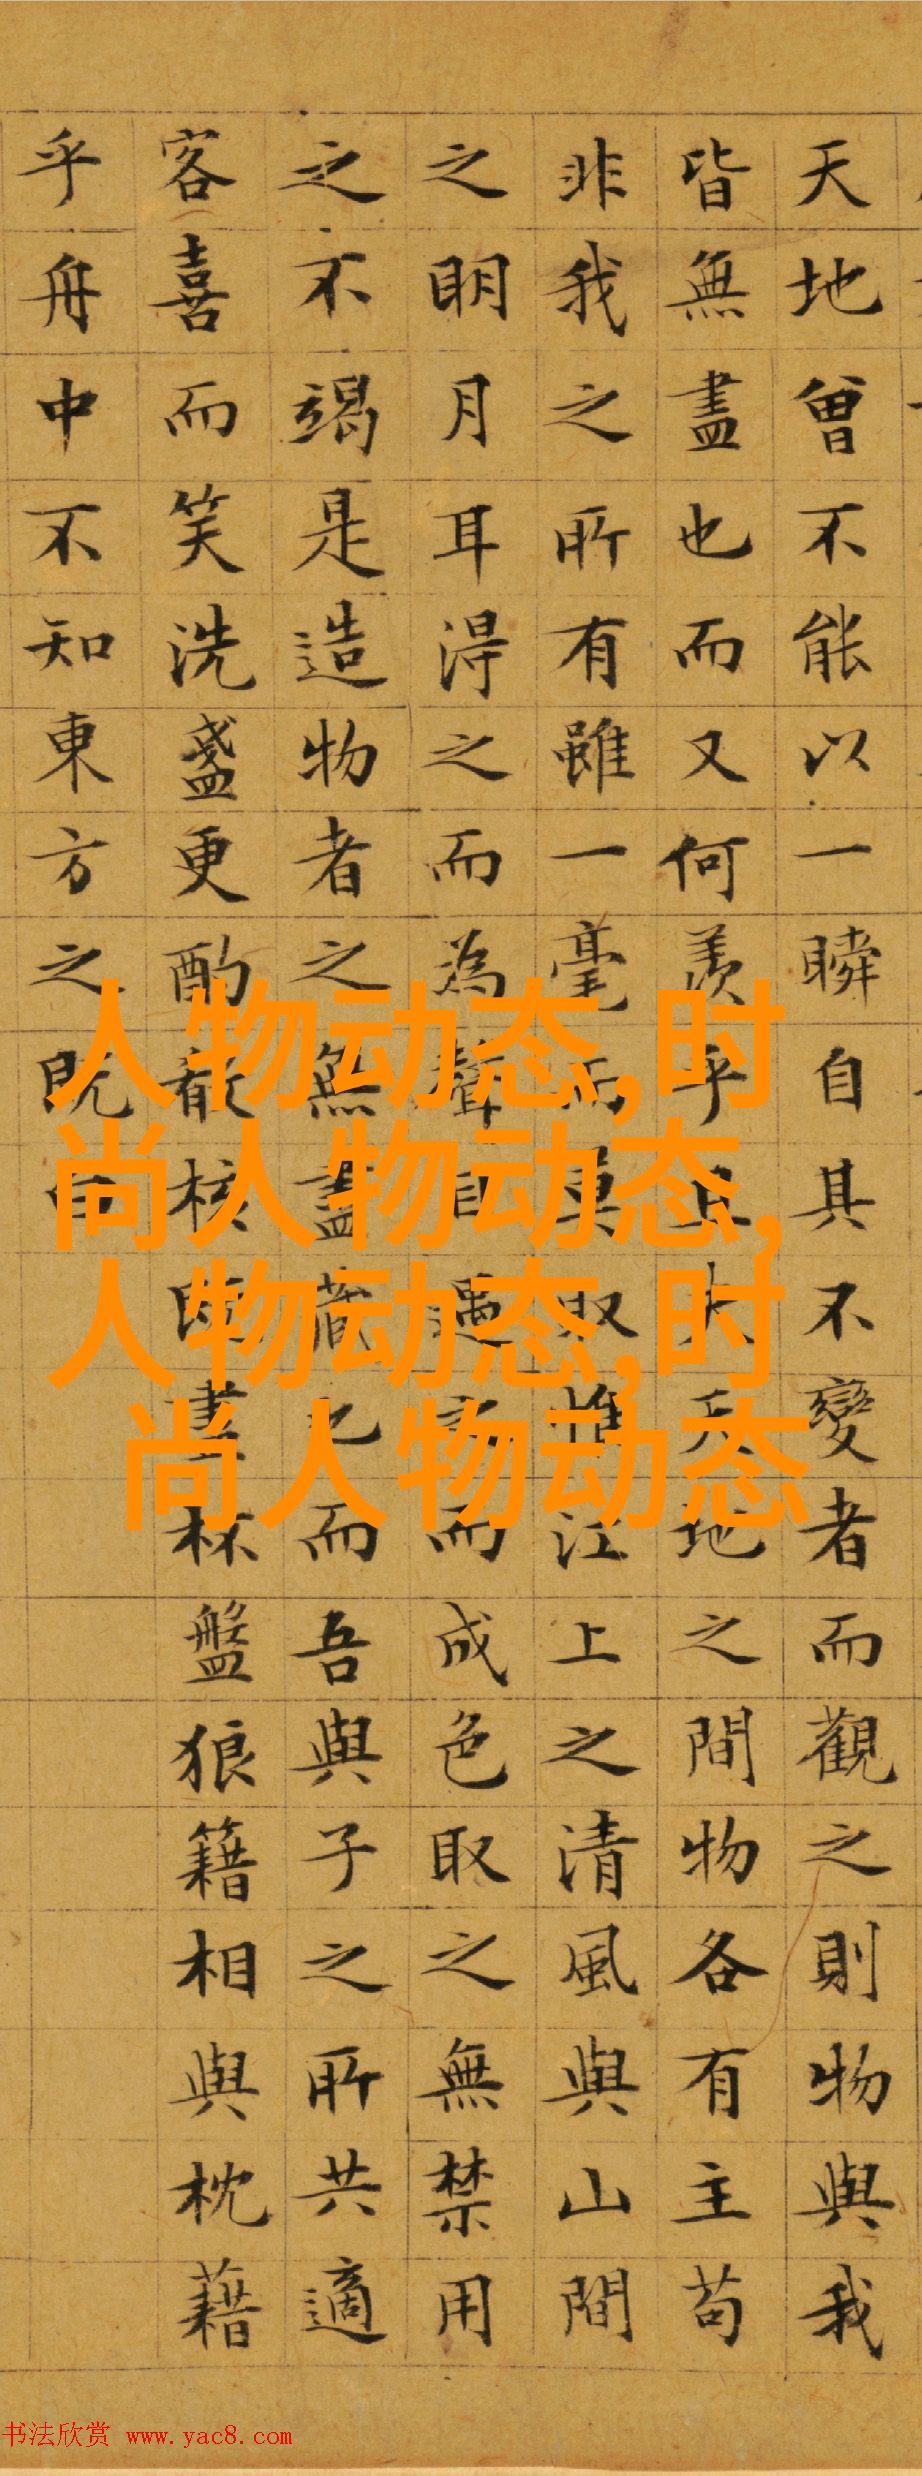 天地曾不能以一瞬自其不變者而觀之則物與我
皆無盡也而又何羨乎且夫天地之間物各有主苟
非我之所有雖一毫而莫取惟江上之清風與山間
之明月耳淂之而為聲目遇之而成色取之無禁用
之不竭是造物者之無盡藏也而吾與子之所共適
客喜而笑洗盞更酌殽核既盡杯盤狼籍相與枕藉
乎舟中不知東方之既白
人物动态,时
尚人物动态,
人物动态,时
尚人物动态
书法欣赏 www.yac8.com